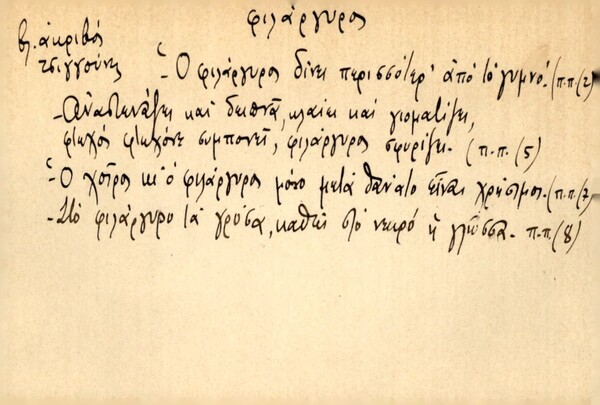 φιλάργυρος
βλ. ἀκριβός
τσιγγούνης
- Ὁ φιλάργυρος δίνει περισσότερ' ἀπό τό γυμνό. (π.π. (2)
- Ἀναστενάζει καί δειπνᾶ, κλαίει καί γιοματίζει,
φτωχός φτωχόνε συμπονεῖ, φιλάργυρος σφυρίζει. (π.π. (5)
- Ὁ χοῖρος κι ὁ φιλάργυρος μόνο μετά θάνατο εἶναι χρήσιμοι. (π.π. (7)
- Στό φιλάργυρο τά γρόσα, καθώς στό νεκρό ἡ γλῶσσα. π.π. (8)